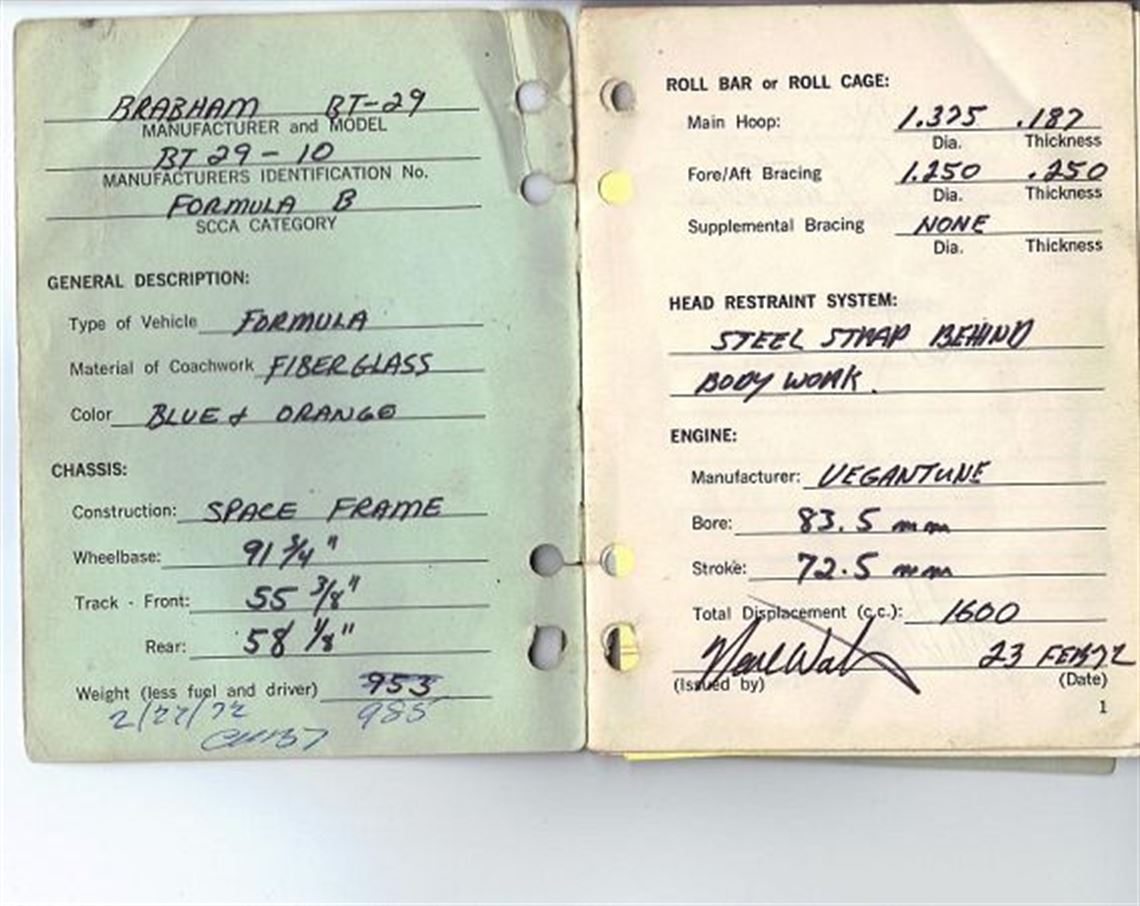 BRABHAM BT-29
MANUFACTURER and MODEL
BT 29-10
MANUFACTURERS IDENTIFICATION No.
FORMULA B
SCCA CATEGORY
GENERAL DESCRIPTION:
Type of Vehicle FORMULA
Material of Coachwork FIBERGLASS
Color BLUE & ORANGE
CHASSIS:
Construction: SPACE FRAME
Wheelbase: 91 3/4 "
Track - Front: 55 3/8"
Rear: 58 1/8"
Weight (less fuel and driver) 953
2/27/72 985
ROLL BAR or ROLL CAGE:
Main Hoop: 1.375 .187
Dia. Thickness
Fore/Aft Bracing 1.250 .250
Dia. Thickness
Supplemental Bracing NONE
Dia. Thickness
HEAD RESTRAINT SYSTEM:
STEEL STRAP BEHIND
BODY WORK.
ENGINE:
Manufacturer: VEGANTUNE
Bore: 83.5 mm
Stroke: 72.5 mm
Total Displacement (c.c.): 1600
23 FEB 72
(Issued by) (Date)
1